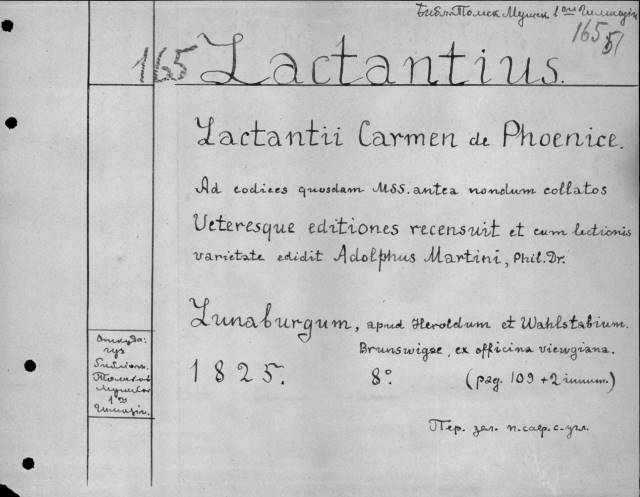 Библ. Томск. Мужск. 1ой Гимназіи
165 51
165 Lactantius.
Lactantii Carmen de Phoenice.
Ad codices quosdam MSS. antea nondum collatos
Veteresque editiones recensuit et cum lectionis
varietate edidit Adolphus Martini, Phil. Dr.
Lunaburgum, apud Heroldum et Wahlstabium.
Brunswigae, ex officina viewgiana.
1825. 8°. (pag. 109 + 2 innum.)
Откуда:
из
Библіот.
Томской
Мужской
1ой
Гимназіи.
Пер. зел. п. сафр. с. угл.